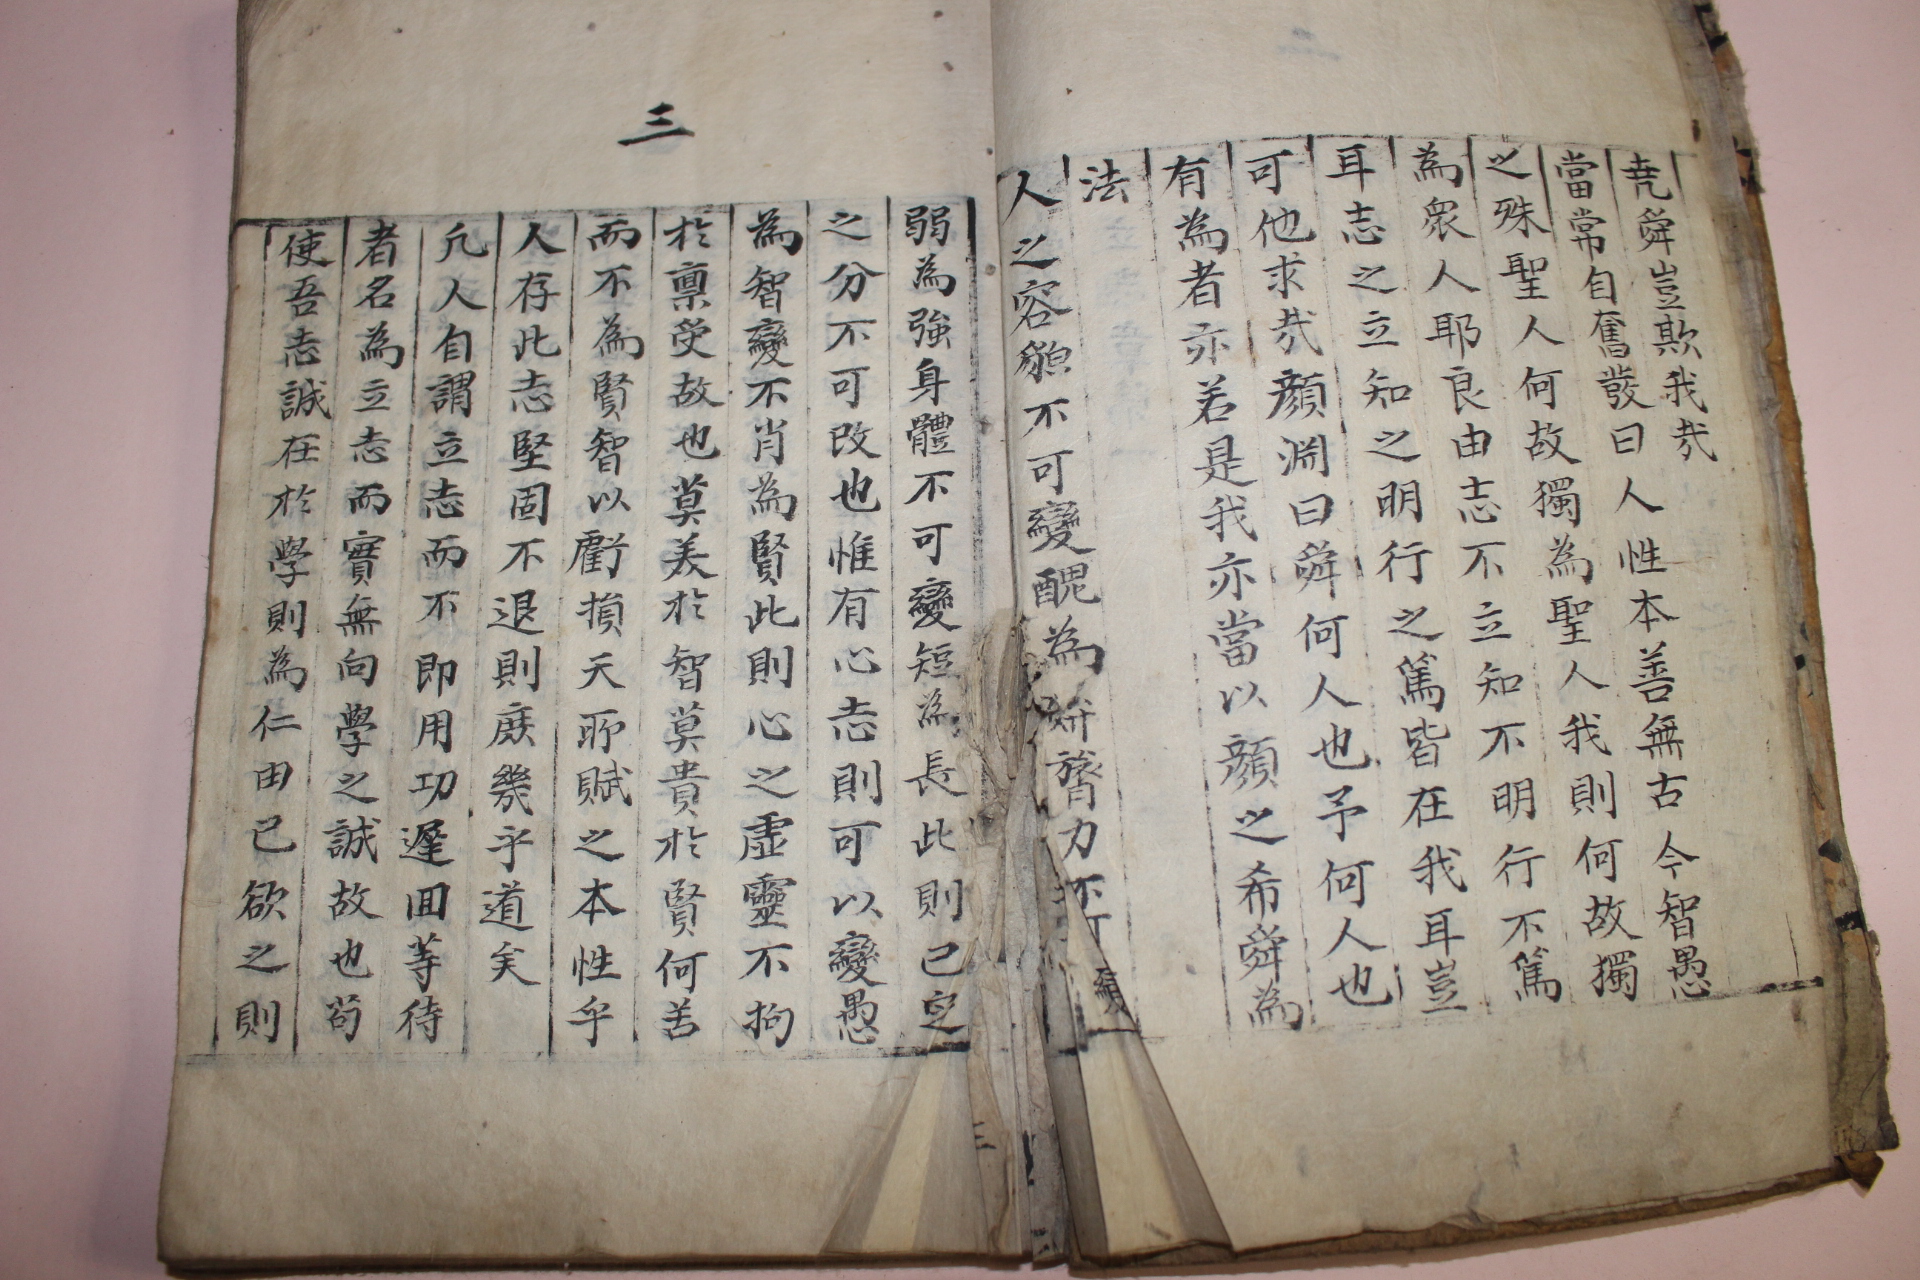 堯舜豈欺我哉
當常自奮發曰人性本善無古今智愚
之殊聖人何故獨為聖人我則何故獨
為衆人耶良由志不立知不明行不篤
耳志之立知之明行之篤皆在我耳豈
可他求哉顔淵曰舜何人也予何人也
有為者亦若是我亦當以顔之希舜為
法
人之容貌不可變醜為妍膂力不可變
三
弱為強身體不可變短為長此則已定
之分不可改也惟有心志則可以變愚
為智變不肖為賢此則心之虛靈不拘
於禀受故也莫美於智莫貴於賢何苦
而不為賢智以虧損天所賦之本性乎
人存此志堅固不退則庶幾乎道矣
凡人自謂立志而不即用功遲回等待
者名為立志而實無向學之誠故也苟
使吾志誠在於學則為仁由己欲之則
三